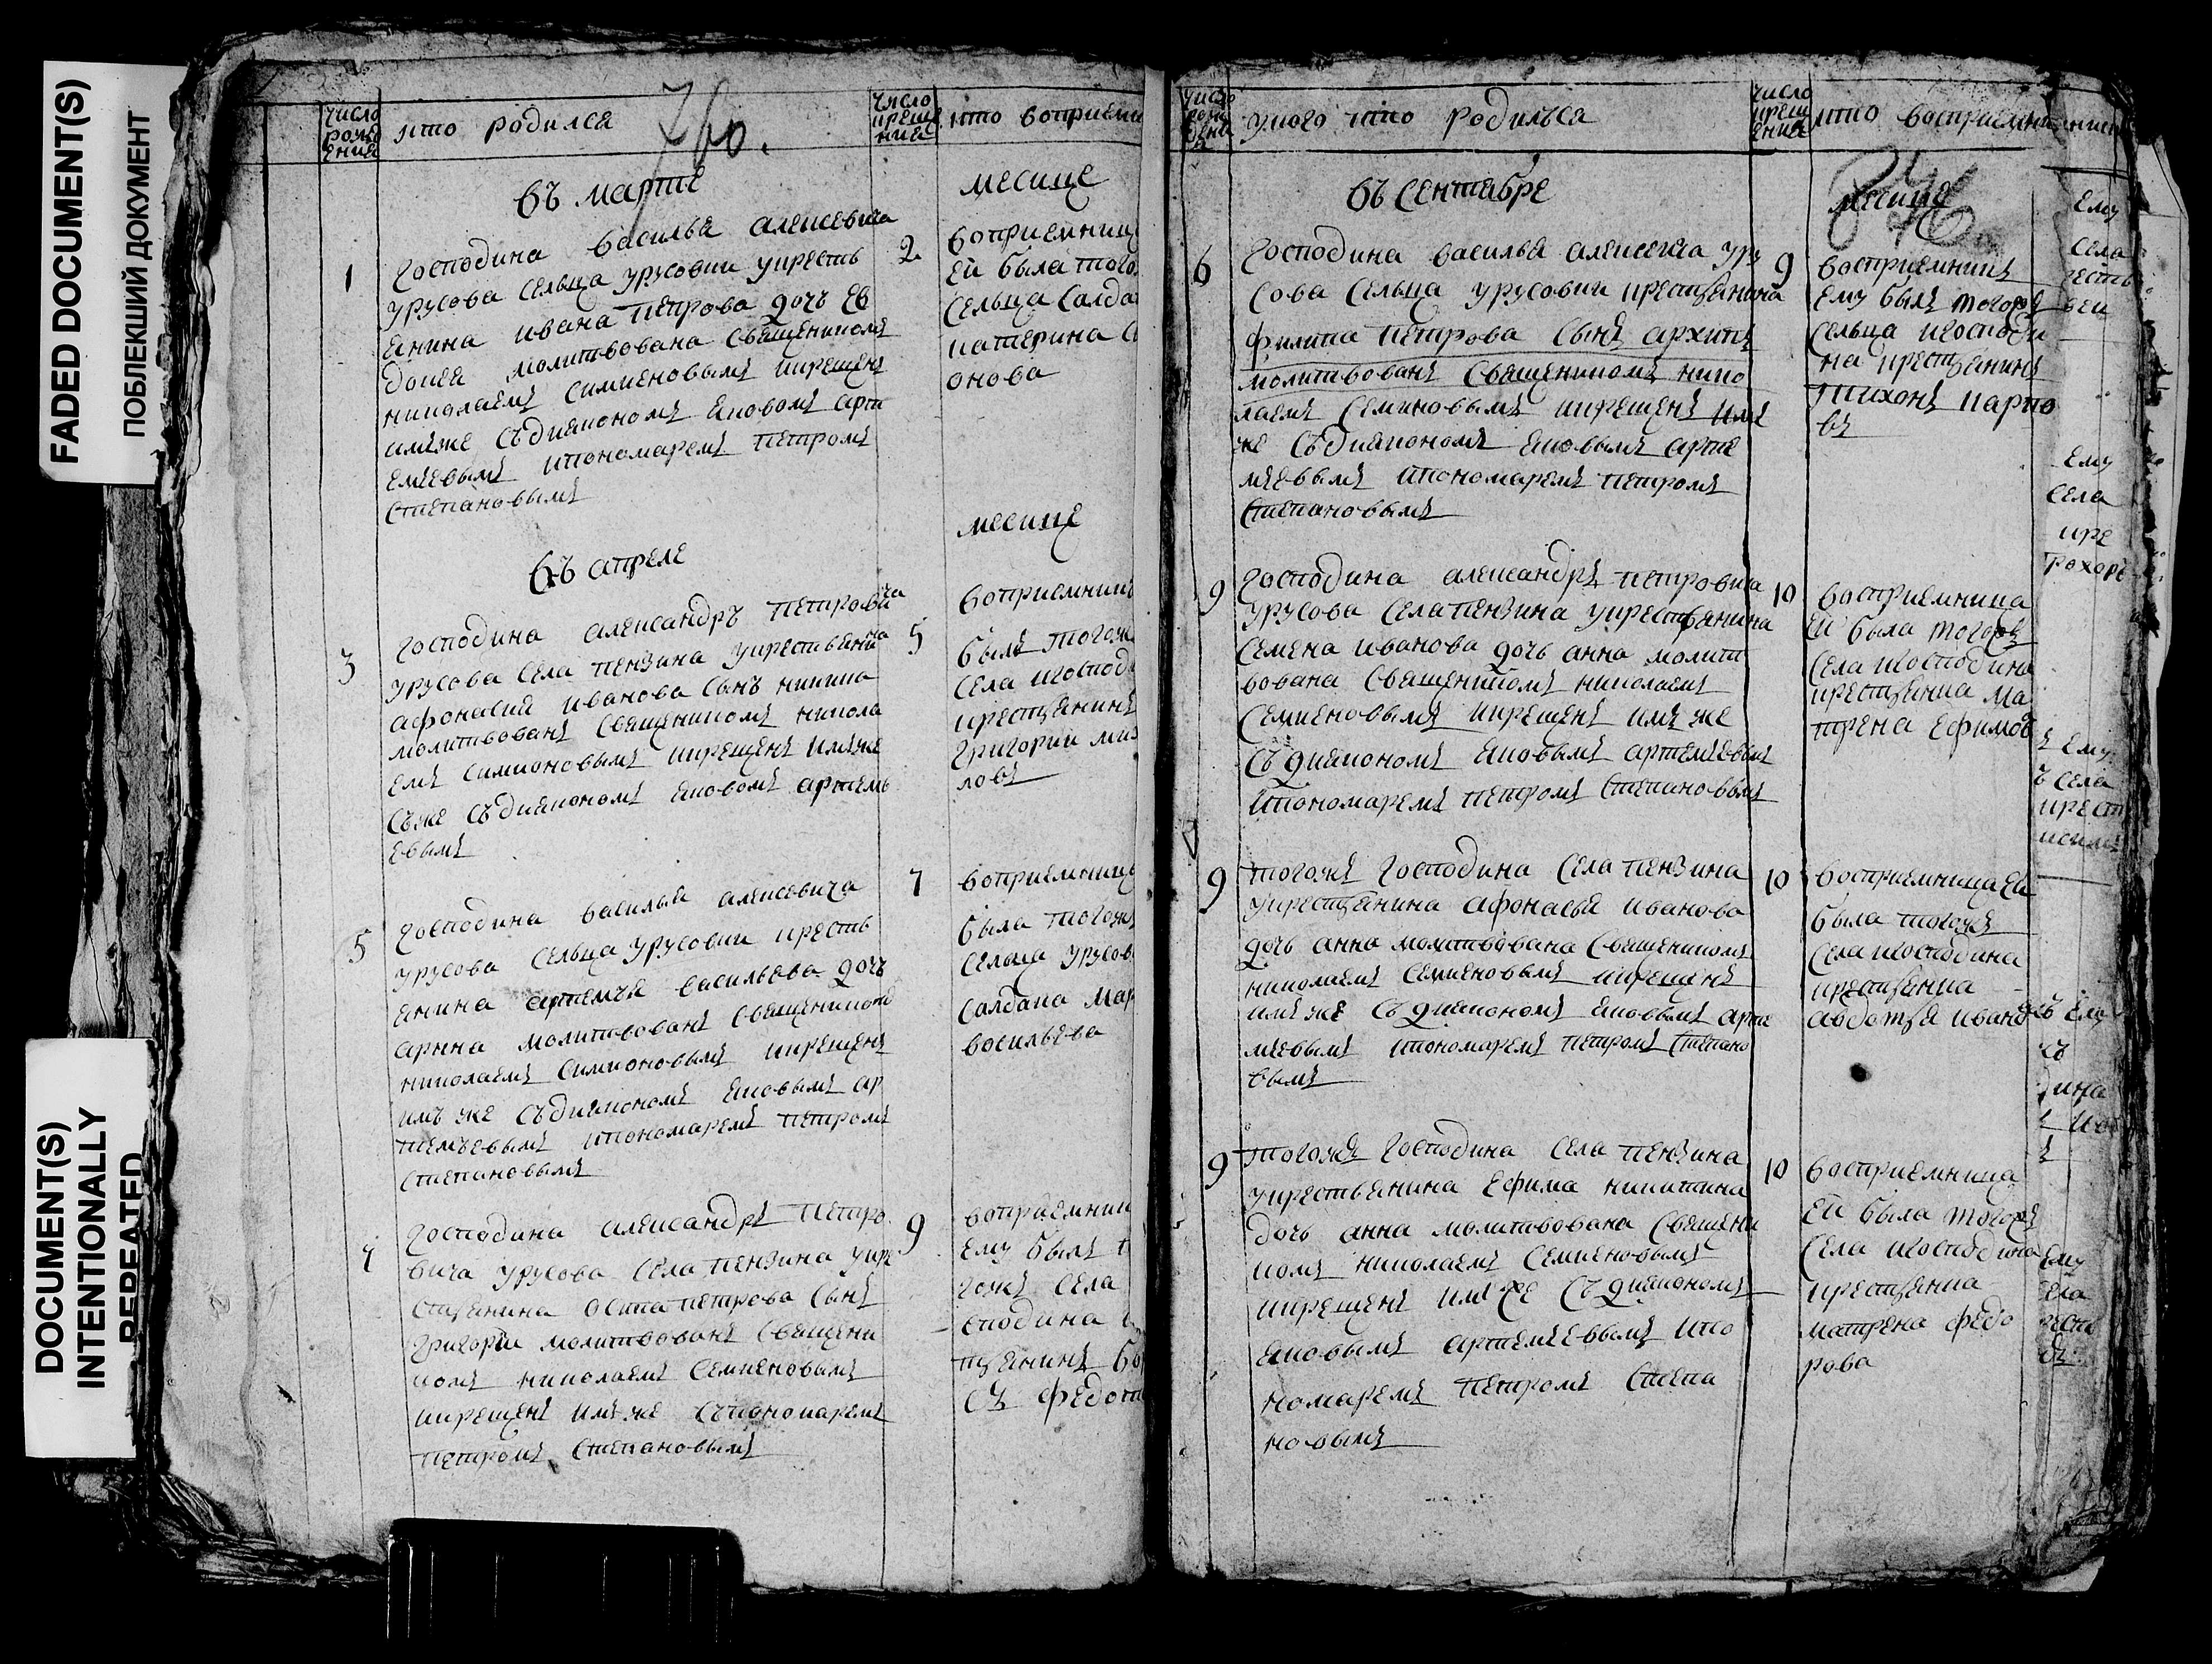 FADED DOCUMENT(S)
ПОБЛЕКШИЙ ДОКУМЕНТ
DOCUMENT(S)
INTENTIONALLY
REPEATED
число
рожд
ения
кто родился
760.
число
креще
ния
кто восприем
въ марте
месяце
1
господина василья алексевича
урусова сельца урусовки укресть
янина ивана петрова дочь ев
докея молитвована священикомъ
николаемъ симиеновымъ икрещенъ
имъже съдияконом яковом арт
емъевымъ ипономаремъ петромъ
степановымъ
2
воприемниц
ей была того
сельца салда
катерина
онова
въ апреле
месяце
3
господина александръ петровича
урусова села пензина укрестьянина
афонасия иванова сынъ никита
молитвованъ священикомъ никола
емъ симионовымъ икрещенъ имъже
съже съдиякономъ яковомъ артемь
евымъ
5
воприемник
былъ тогож
села игоспод
крестьянинъ
григории ми
ловъ
5
господина василья алексевича
урусова сельца урусовки кресть
янина артемъя васильева дочь
арина молитвованъ священиком
николаемъ симионовымъ икрещенъ
имъ же съдиякономъ яковымъ ар
темъевымъ ипономаремъ петромъ
степановымъ
7
воприемниц
была тогожъ
сельца урусов
салдака мар
васильева
7
господина александръ петро
вича урусова села пензина укре
стьянина осипа петрова сынъ
григории молитвованъ священи
комъ николаемъ семиеновымъ
икрещенъ имъже съпономаремъ
петромъ степановымъ
9
воприемник
ему былъ т
гожъ села
сподина
тьянинъ
федот
число
рожд
ени
у кого кто родилься
число
крещ
ения
кто восприемни
въ сентябре
месяце
6
господина василья алексеича уру
сова сельца урусовки крестьянина
филипа петрова сынъ архипъ
молитвованъ священикомъ нико
лаемъ семиновымъ икрещенъ имъ
же съдиякономъ яковымъ арте
мъевымъ ипономаремъ петромъ
степановымъ
9
восприемникъ
ему былъ тогожъ
сельца игосподи
на крестьянинъ
тихонъ карпо
въ
9
господина александръ петровича
урусова села пензина укрестьянина
семена иванова дочь анна молит
вована священикомъ николаемъ
семиеновымъ икрещенъ имъ же
съ диякономъ яковымъ артемъевымъ
ипономаремъ петромъ степановымъ
10
восприемница
ей была тогожъ
села игосподина
крестьянка ма
трена ефимов
9
тогожъ господина села пензина
укрестьянина афонасья иванова
дочь анна молитвована священикомъ
николаемъ семиеновымъ икрещенъ
имъ же съ диякономъ яковымъ арте
мъевымъ ипономаремъ петромъ степано
вымъ
10
восприемница ей
была тогожъ
села игосподина
крестьянка
авдотья ивано
9
тогожъ господина села пензина
укрестьянина ефима никитина
дочь анна молитвована священи
комъ николаемъ семиеновымъ
икрещенъ имъ же съ диякономъ
яковымъ артемъевымъ ипо
номаремъ петромъ степа
новымъ
10
восприемница
ей была тогожъ
села игосподина
крестьянка
матрена федо
рова
ему
села
ему
села
кре
ему
села
крест
ему
села